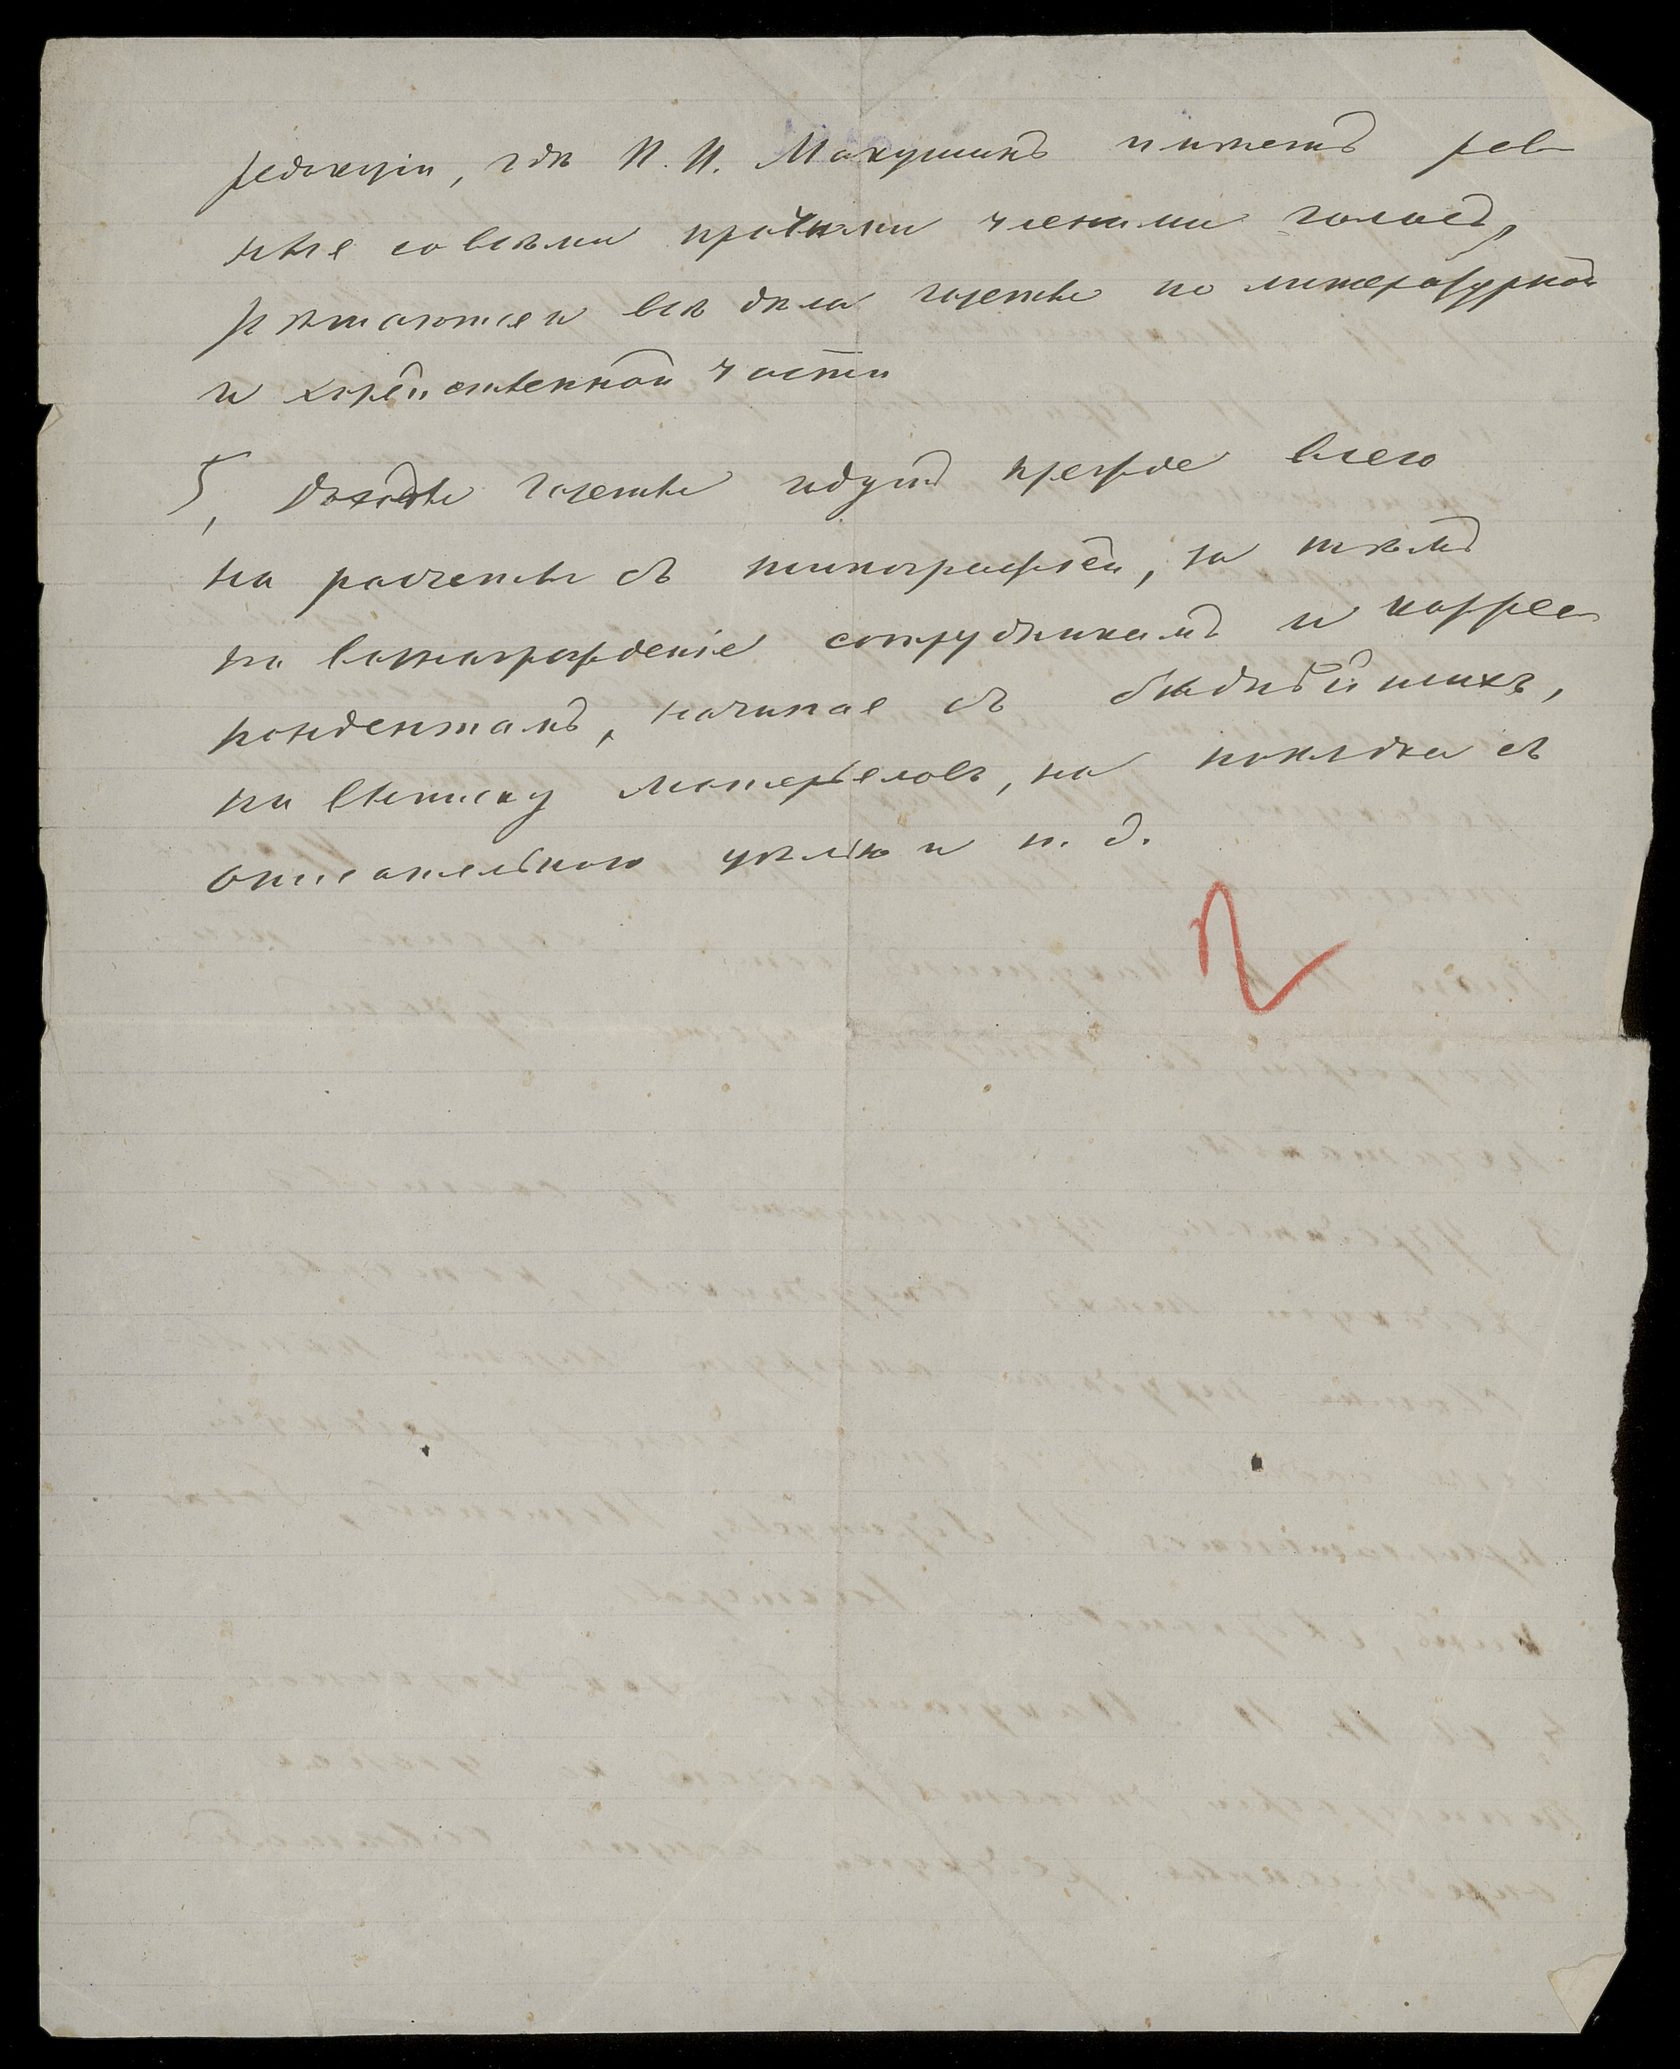 редакціи, гдѣ П. И. Макушинъ имѣетъ рав
ный со всѣми прочими членами голосъ,
рѣшаются всѣ дѣла газеты по литературной
и хозяйственной части
5, Доходы газеты идутъ прежде всего
на расчеты съ типографіей, за тѣмъ
на вознагражденіе сотрудникамъ и коррес
пондентамъ, начиная съ бѣднѣйшихъ,
на выписку матерьяловъ, на поѣздки съ
описательною цѣлью и т. д.